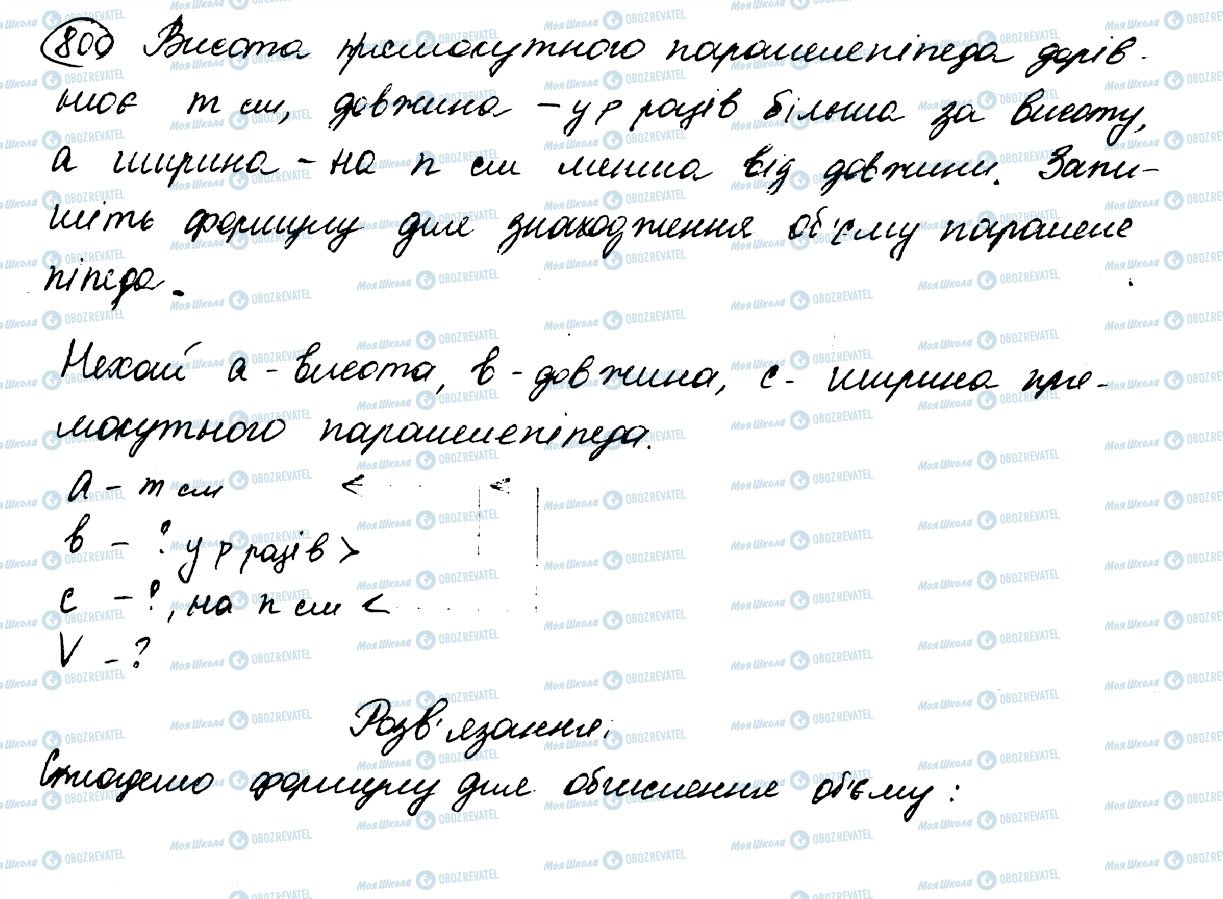 800 Висота прямокутного паралелепіпеда дорів-
нює m см, довжина – у p разів більша за висоту,
а ширина – на n см менша від довжини. Запи-
шіть формулу для знаходження об'єму паралеле
піпеда.
Нехай а - висота, в - довжина, с - ширина пря-
мокутного паралелепіпеда.
а - m см <
в - ? у p разів >
с - ?, на n см <
V - ?
Розв'язання.
Складемо формулу для обчислення об'єму: